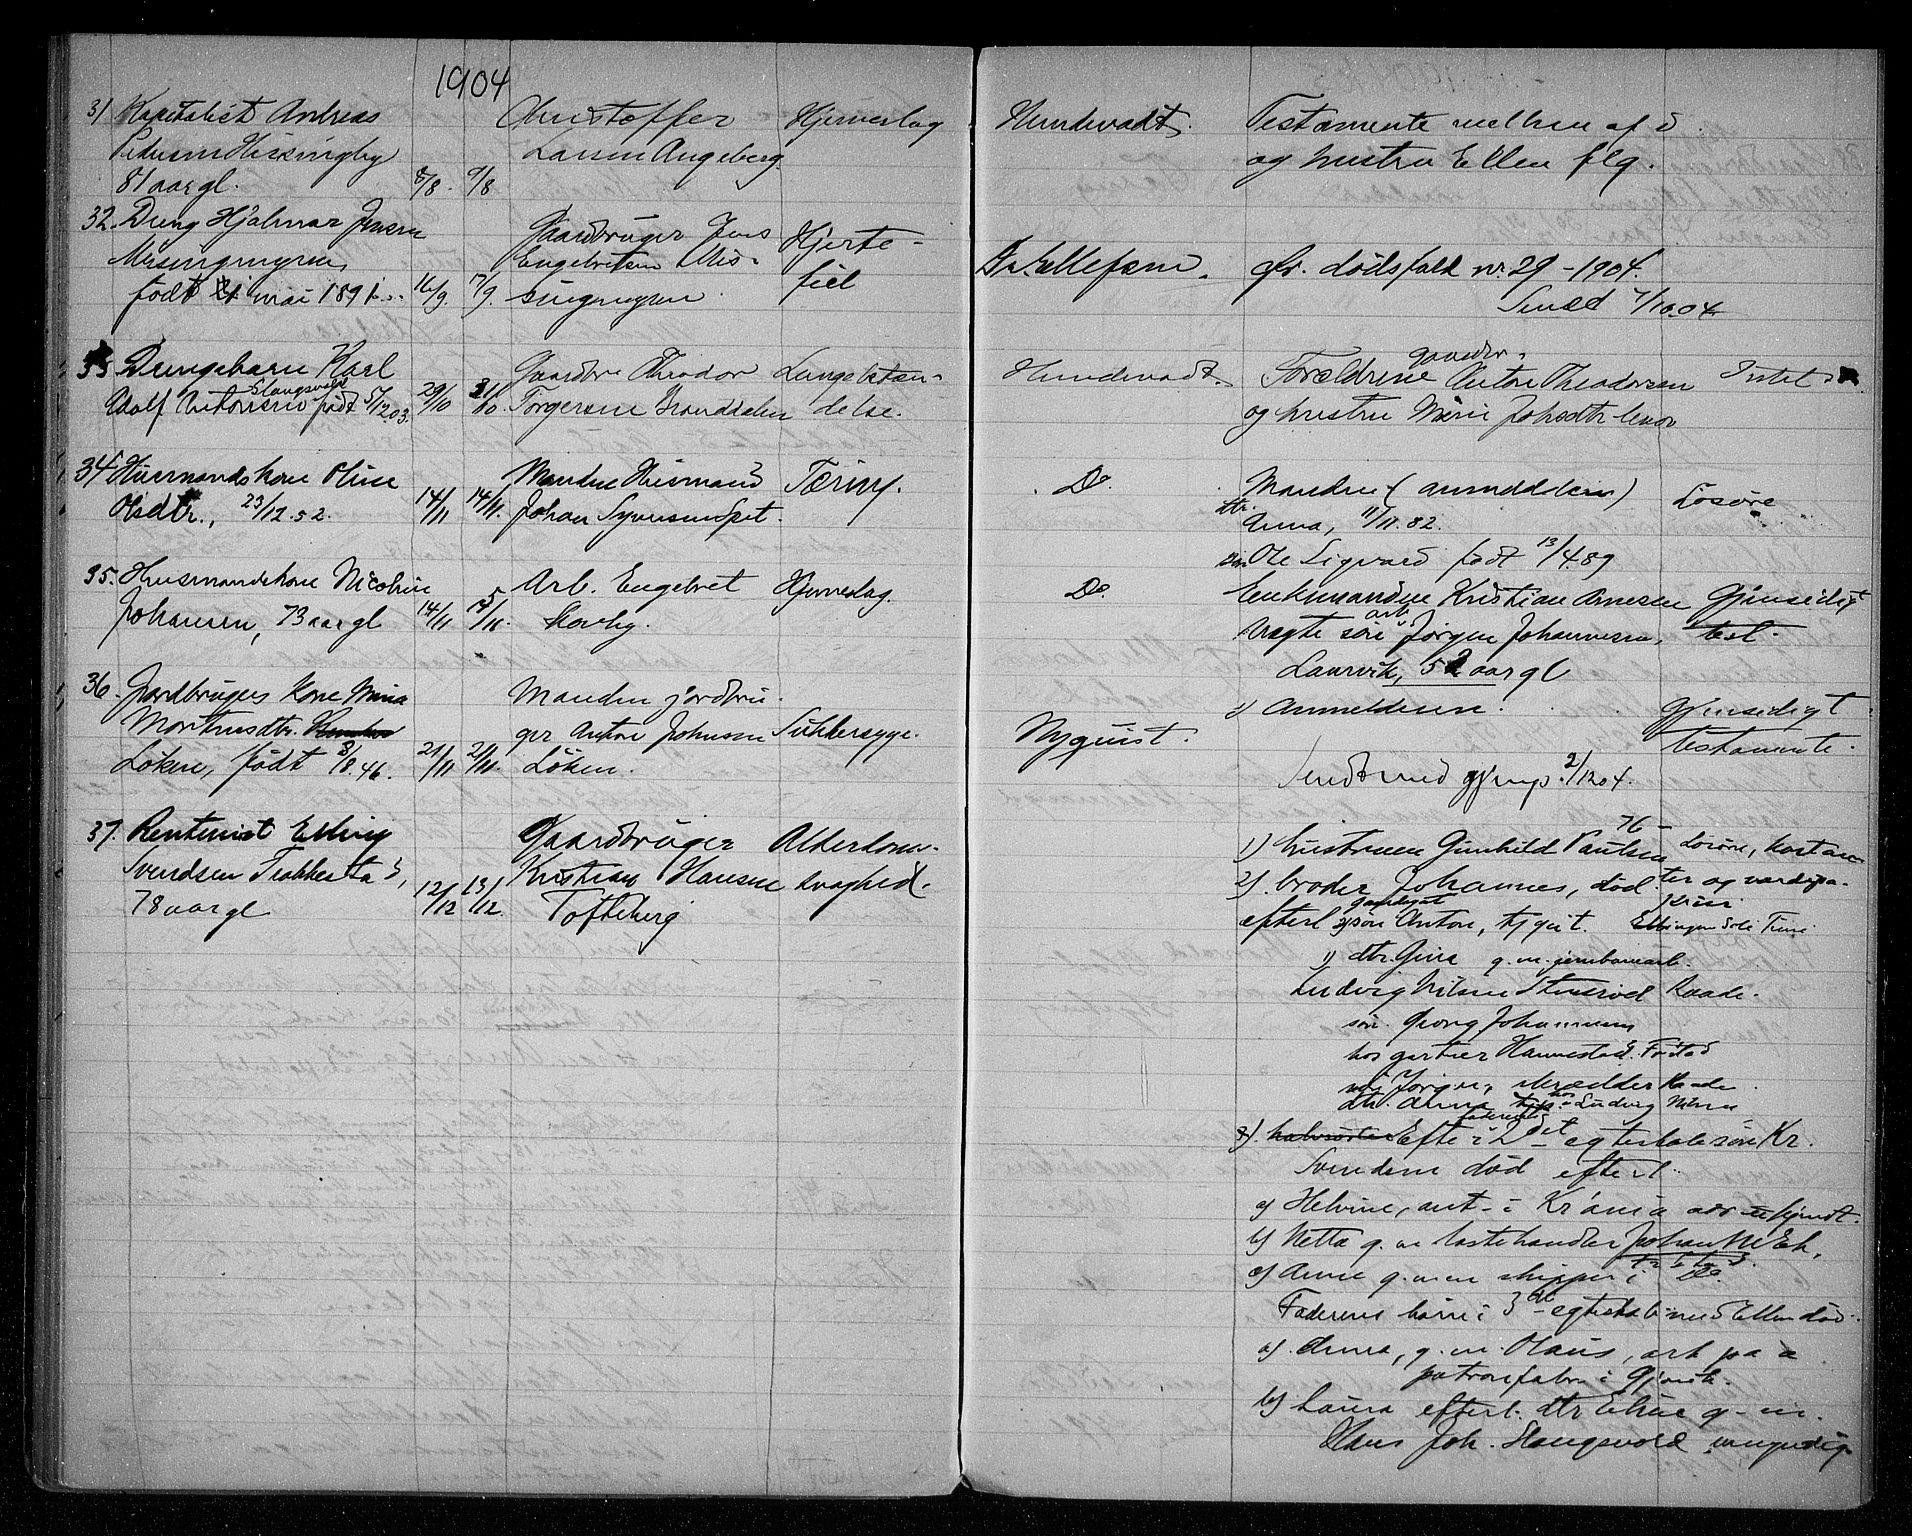 1904
31 Kapitalist Andreas
Pedersen Hissingby
81 aar gl. 8/8. 9/8
Christoffer
Larsen Augeberg.
Hjerneslag
Hundevadt.
Testamente mellem afd
og hustru Ellen flg.
32. Dreng Hjalmar Jensen
Misingmyren,
født mai 1891. 16/9. 17/9.
Gaardbruger Jens
Engebretsen Mis-
singmyren
Hjerte-
feil
Dr. Ellefsen.
Cfr. dødsfald nr. 29 - 1904.
Send 7/10.04
33 Drengebarn Karl
Adolf Antonsen Slangsvold født 5/12.03. 29/10 31/10
Gaardbr Theodor
Torgersen Granddalen
Lungebetæn-
delse.
Hundevadt.
Forældrene gaardbr. Anton Theodorsen
og hustru Marie Johsdtr lever
Intet
34 Husmandskone Oline
Olsdtr., 23/12.52. 14/11 14/11.
Manden Husmand
Johan Syversen
Tæring.
Do.
Manden (anmelderen)
dtr. Anna, 11/11.82.
søn Ole Sigvard født 13/4.89
Løsøre
35. Husmandskone Nicoline
Johansen, 73 aar gl 14/11 15/11.
Arb. Engebret
Skovby.
Hjerneslag.
Do.
Enkemanden Kristian Arnesen
ægte søn arb. Jørgen Johannesen,
Laurvik, 52 aar gl
Gjensidigt
test.
36. Jordbrugers kone Mina
Mortensdtr.
Løken, født 8/8.46. 21/11 21/11.
Manden jordbru
ger Anton Johnsen
Løken.
Sukkersyge.
Nyquist.
1) Anmelderen.
Gjensidigt
testamente.
Sendt med gjenp. 2/12 04.
37. Rentenist Elling
Svendsen Trollestad,
78 aar gl 12/12 13/12.
Gaardbruger
Kristian Hansen
Tofteberg
Alderdoms-
svaghed.
1) hustruen Gunhild Paulsen 76 -
Løsøre, kontan
2) broder Johannes, død.
ter og værdipa-
efterl søn Anton, ugift.
1) dtr. Gina g.m. jernbanearb.
Ludvig Nilsen Stensrød Raade.
søn Georg Johannesen
hos gartner Hannestad. F.stad
søn Jørgen, skrædder Raade
dtr. Anna hos Ludvig Nilsen
3) halvsøster Efter i 2det egteskab søn Kr.
Svendsen død efterl.
a) Helvine, ant. i Kr.ania adr ukjendt.
b) Netta g. m. hestehandler Johan M. Ek,
F.stad.
c) Anne g.m. en skipper i Do.
Faderens børn i 3die egteskab med Ellen død
a) Anna, g.m. Olaus, arb paa
patronfabr i Gjøvik.
b) Laura efterl. dtr Eline g.m.
Hans Joh. Slangsvold, umyndig